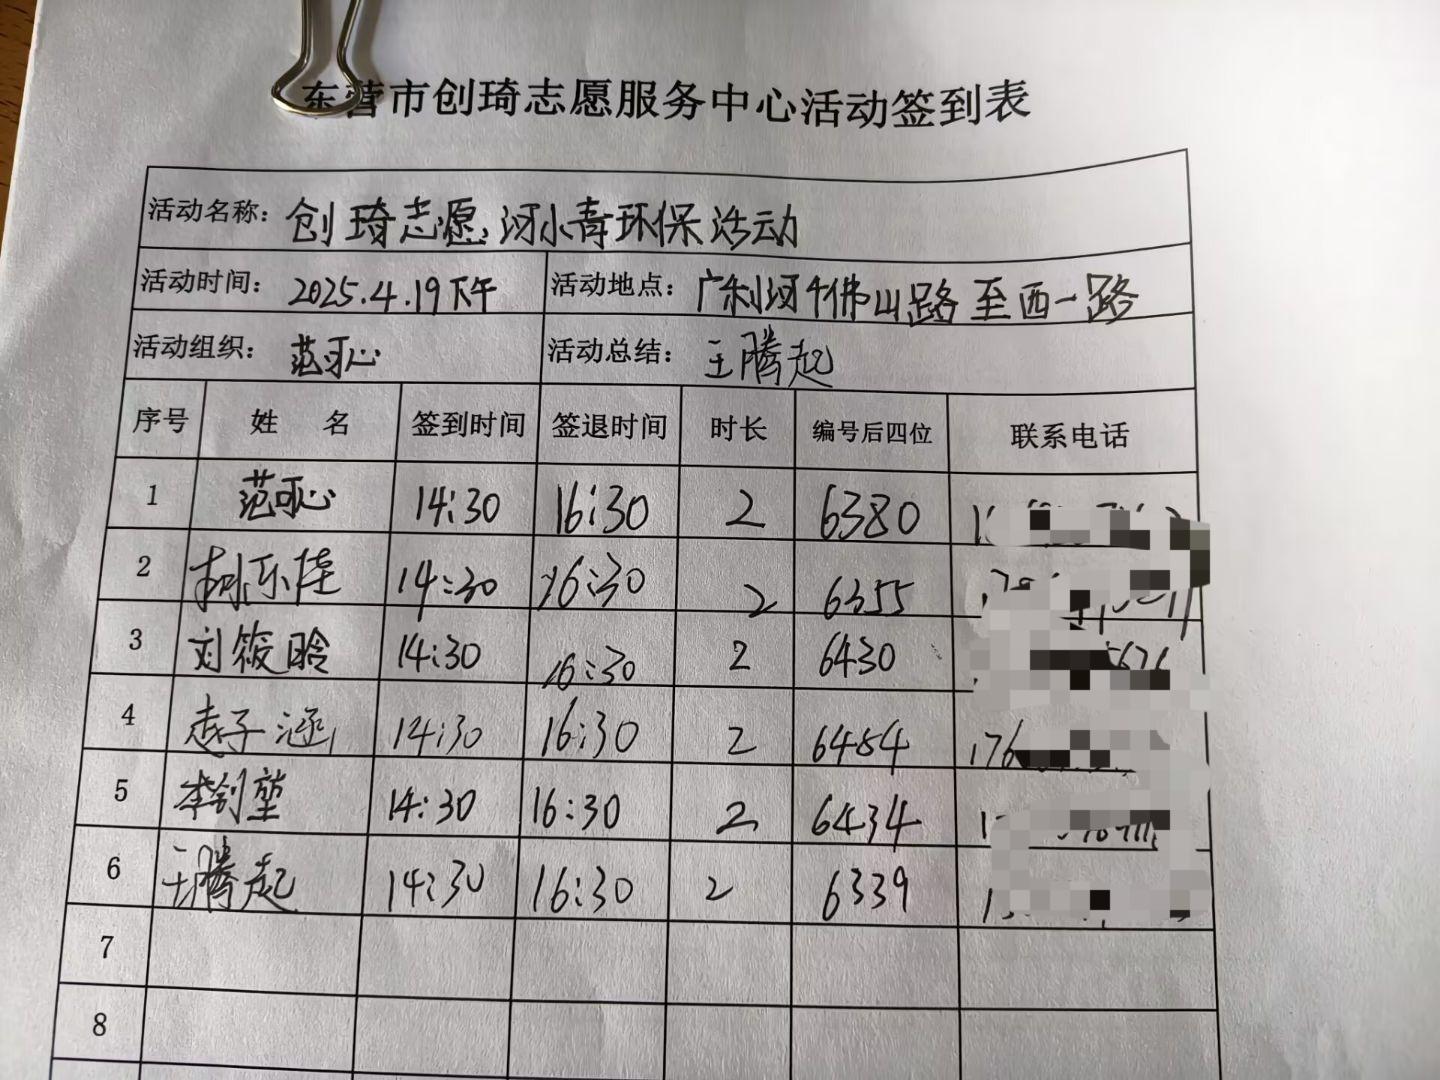 东营市创琦志愿服务中心活动签到表
活动名称：创琦志愿河小青环保活动
活动时间：2025.4.19下午 活动地点：广利河千佛山路至西一路
活动组织：范可心 活动总结：王腾起
序号 姓 名 签到时间 签退时间 时长 编号后四位 联系电话
1 范可心 14:30 16:30 2 6380
2 14:30 16:30 2 6355
3 刘筱晗 14:30 16:30 2 6430
4 孟子涵 14:30 16:30 2 6484 176
5 李钊堃 14:30 16:30 2 6434
6 王腾起 14:30 16:30 2 6339
7
8